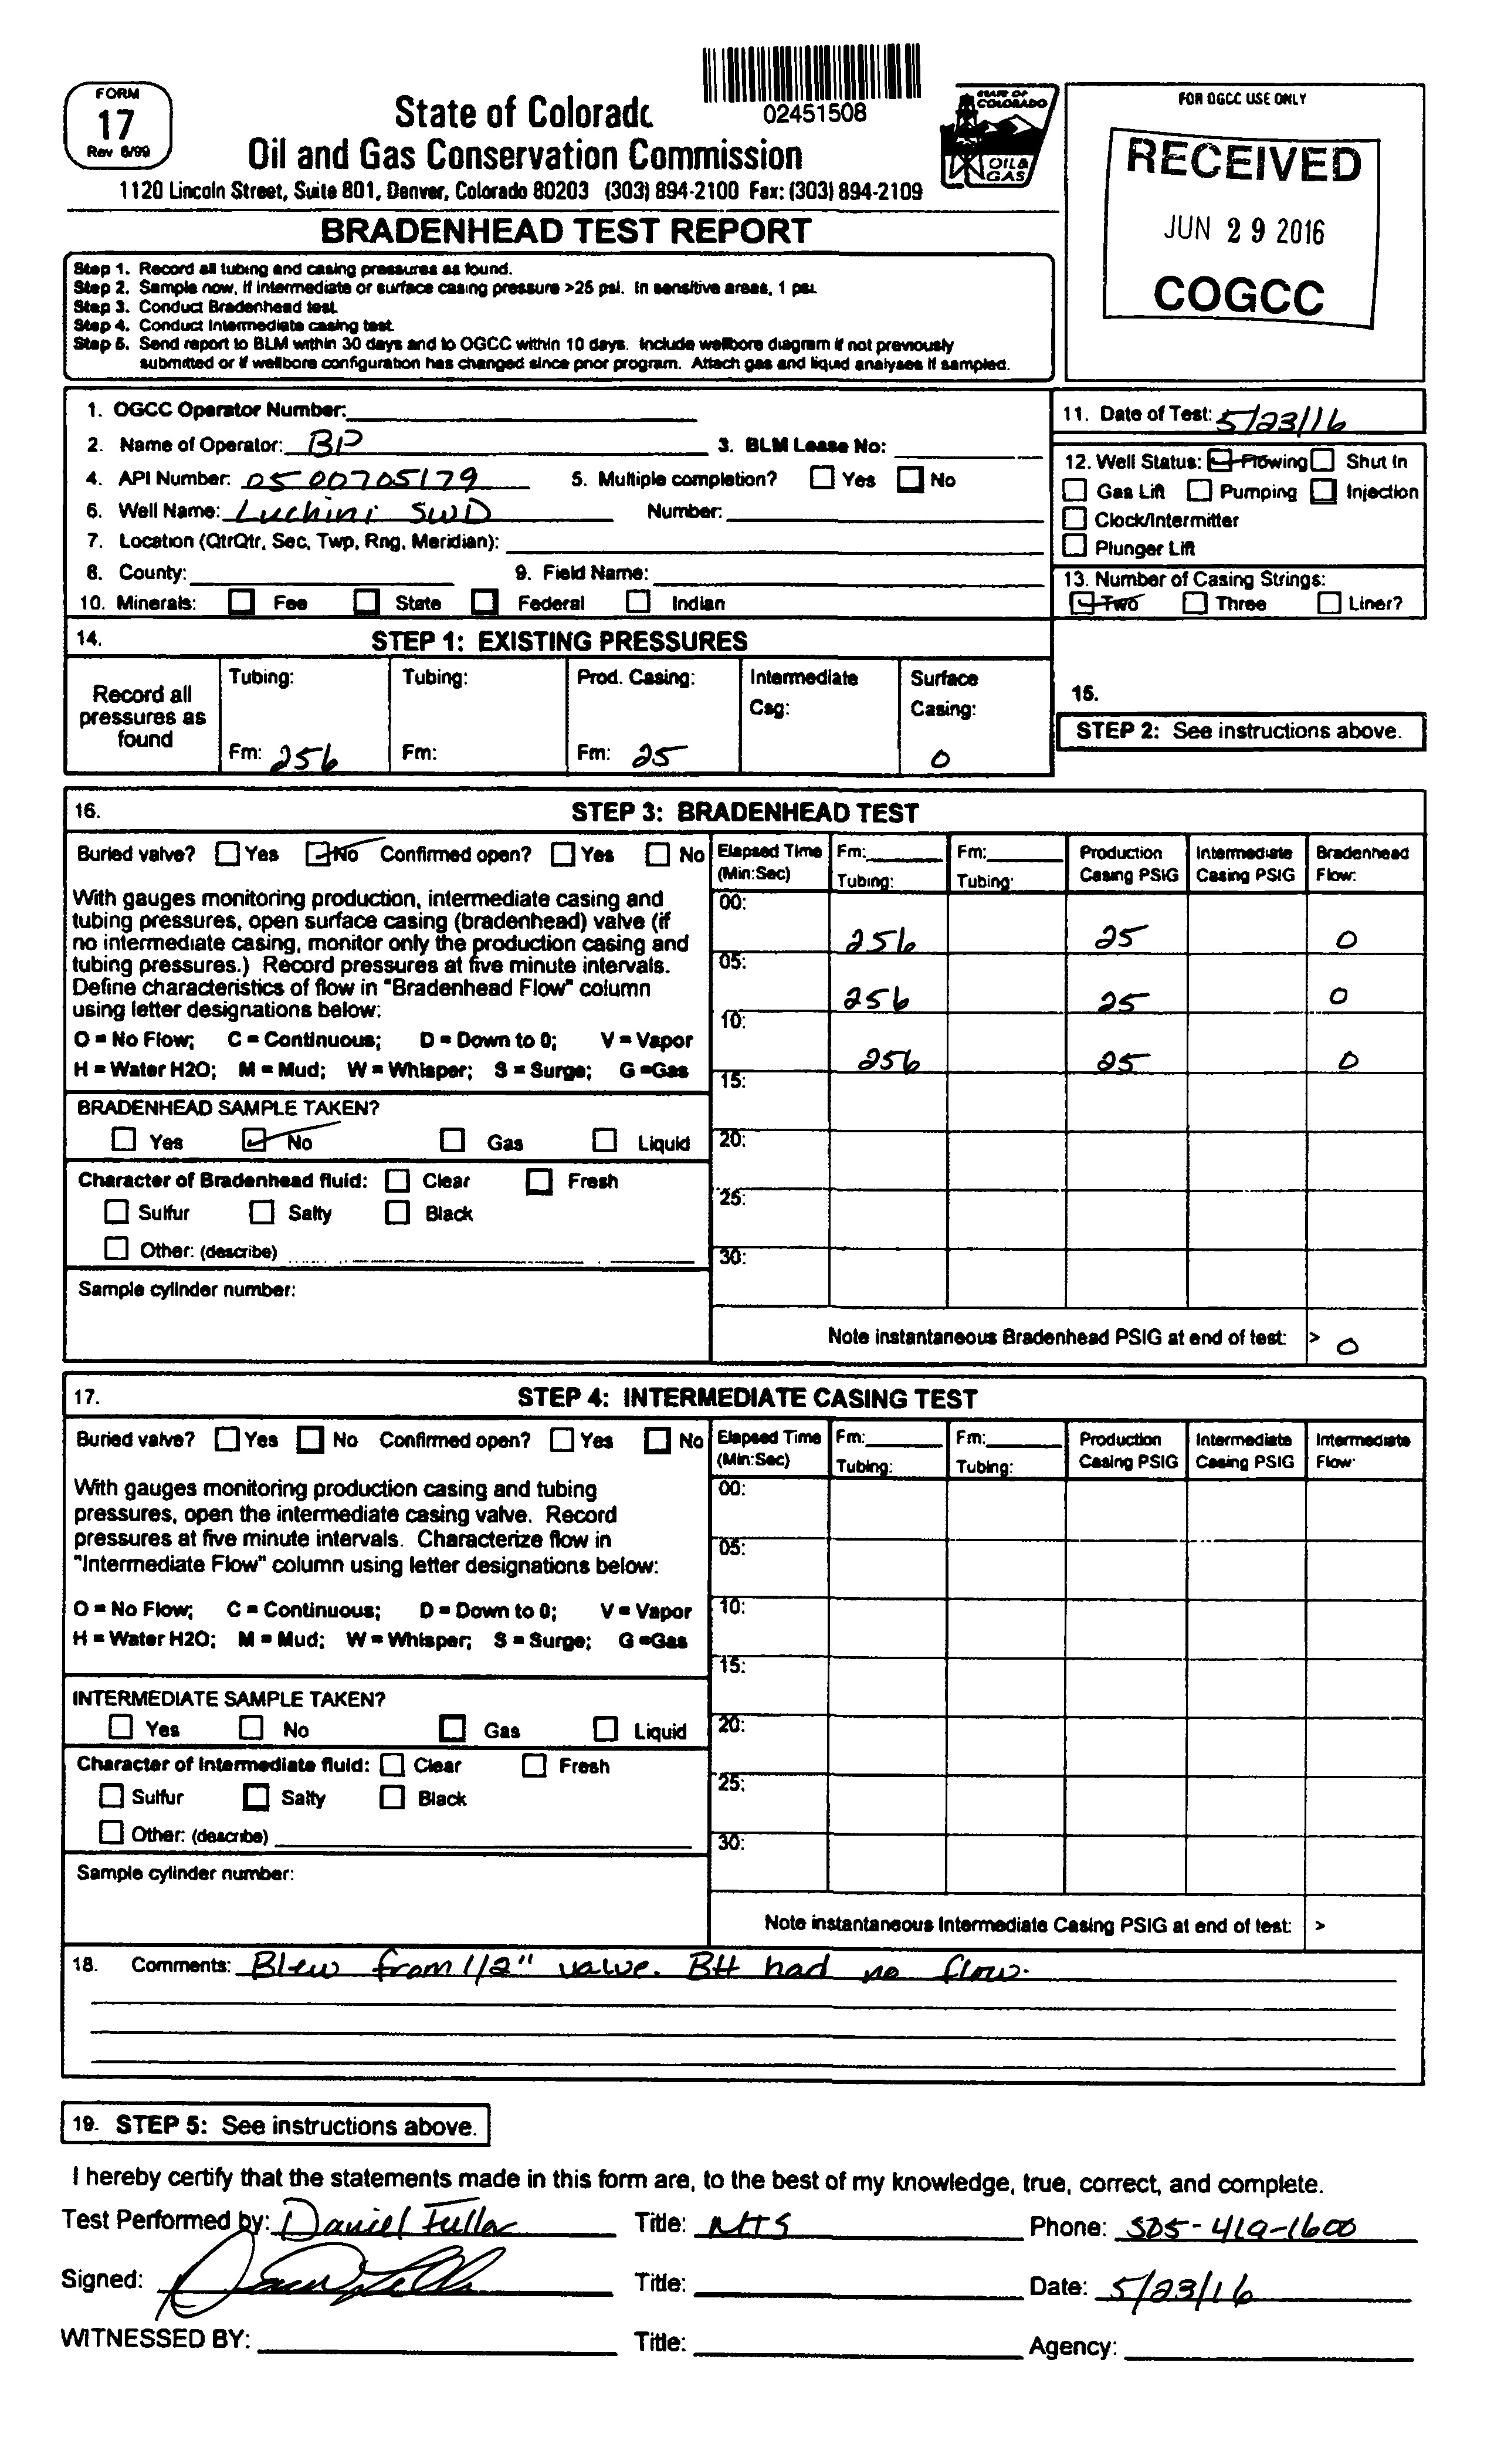 FORM
17
Rev 6/99
02451508
State of Colorado
Oil and Gas Conservation Commission
1120 Lincoln Street, Suite 801, Denver, Colorado 80203 (303) 894-2100 Fax: (303) 894-2109
STATE OF
COLORADO
OIL &
GAS
FOR OGCC USE ONLY
RECEIVED
JUN 29 2016
COGCC
BRADENHEAD TEST REPORT
Step 1. Record all tubing and casing pressures as found.
Step 2. Sample now, if intermediate or surface casing pressure >25 psi. In sensitive areas, 1 psi.
Step 3. Conduct Bradenhead test.
Step 4. Conduct Intermediate casing test.
Step 5. Send report to BLM within 30 days and to OGCC within 10 days. Include wellbore diagram if not previously
submitted or if wellbore configuration has changed since prior program. Attach gas and liquid analyses if sampled.
1. OGCC Operator Number:
2. Name of Operator: BP 3. BLM Lease No:
4. API Number: 05 00705179 5. Multiple completion? Yes No
6. Well Name: Luchini SWD Number:
7. Location (QtrQtr, Sec, Twp, Rng, Meridian):
8. County: 9. Field Name:
10. Minerals: Fee State Federal Indian
11. Date of Test: 5/23/16
12. Well Status: Flowing Shut In
Gas Lift Pumping Injection
Clock/Intermitter
Plunger Lift
13. Number of Casing Strings:
Two Three Liner?
14. STEP 1: EXISTING PRESSURES
Record all
pressures as
found
Tubing:
Fm: 256
Tubing:
Fm:
Prod. Casing:
Fm: 25
Intermediate
Csg:
Surface
Casing:
0
15.
STEP 2: See instructions above.
16. STEP 3: BRADENHEAD TEST
Buried valve? Yes No Confirmed open? Yes No
With gauges monitoring production, intermediate casing and
tubing pressures, open surface casing (bradenhead) valve (if
no intermediate casing, monitor only the production casing and
tubing pressures.) Record pressures at five minute intervals.
Define characteristics of flow in "Bradenhead Flow" column
using letter designations below:
O = No Flow; C = Continuous; D = Down to 0; V = Vapor
H = Water H2O; M = Mud; W = Whisper; S = Surge; G =Gas
BRADENHEAD SAMPLE TAKEN?
Yes No Gas Liquid
Character of Bradenhead fluid: Clear Fresh
Sulfur Salty Black
Other: (describe)
Sample cylinder number:
Elapsed Time Fm: Fm: Production Intermediate Bradenhead
(Min:Sec) Tubing: Tubing: Casing PSIG Casing PSIG Flow:
00:
256 25 0
05:
256 25 0
10:
256 25 0
15:
20:
25:
30:
Note instantaneous Bradenhead PSIG at end of test: > 0
17. STEP 4: INTERMEDIATE CASING TEST
Buried valve? Yes No Confirmed open? Yes No
With gauges monitoring production casing and tubing
pressures, open the intermediate casing valve. Record
pressures at five minute intervals. Characterize flow in
"Intermediate Flow" column using letter designations below:
O = No Flow; C = Continuous; D = Down to 0; V = Vapor
H = Water H2O; M = Mud; W = Whisper; S = Surge; G =Gas
INTERMEDIATE SAMPLE TAKEN?
Yes No Gas Liquid
Character of Intermediate fluid: Clear Fresh
Sulfur Salty Black
Other: (describe)
Sample cylinder number:
Elapsed Time Fm: Fm: Production Intermediate Intermediate
(Min:Sec) Tubing: Tubing: Casing PSIG Casing PSIG Flow:
00:
05:
10:
15:
20:
25:
30:
Note instantaneous Intermediate Casing PSIG at end of test: >
18. Comments: Blew from 1/2" valve. BH had no flow.
19. STEP 5: See instructions above.
I hereby certify that the statements made in this form are, to the best of my knowledge, true, correct, and complete.
Test Performed by: Daniel Fuller Title: Phone: 505-419-1600
Signed: Title: Date: 5/23/16
WITNESSED BY: Title: Agency: